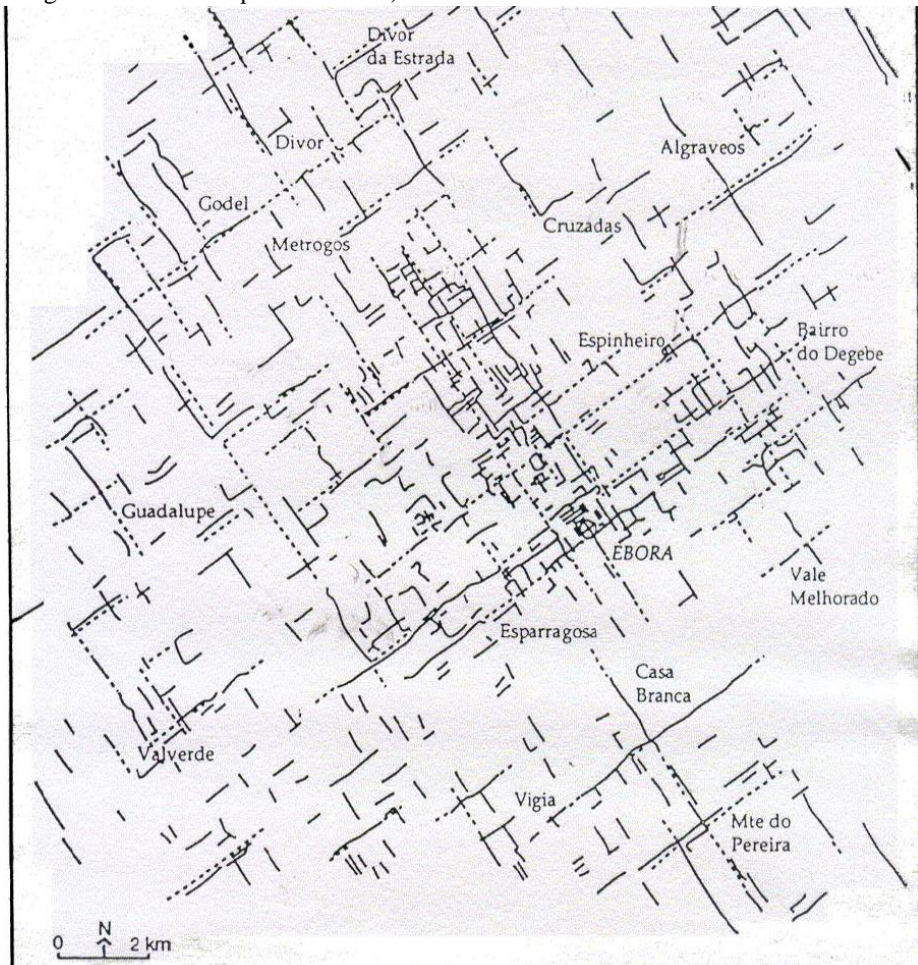 Divor
da Estrada
Divor
Algraveos
Godel
Cruzadas
Metrogos
Espinheiro
Bairro
do Degebe
Guadalupe
EBORA
Vale
Melhorado
Esparragosa
Casa
Branca
Valverde
Vigia
Mte do
Pereira
N
0 2 km